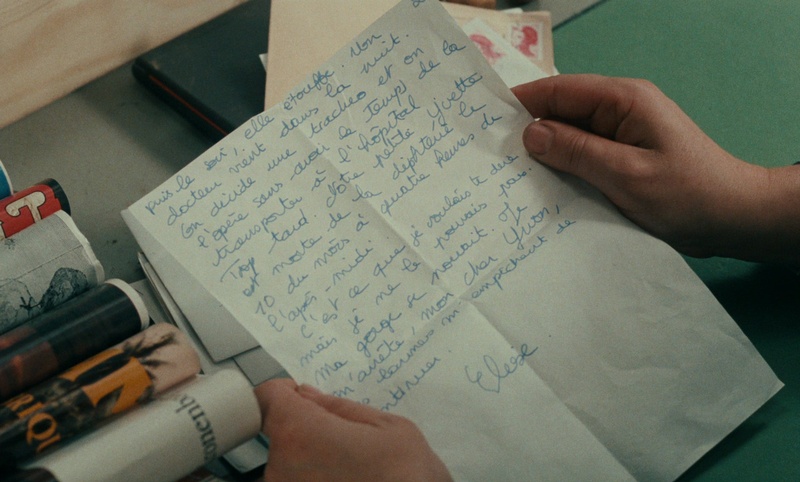 puis le soir, elle étouffe.
docteur vient dans la nuit.
On décide une trachéo et on
l'opère sans avoir le temps de la
transporter à l'hôpital.
Trop tard. Notre petite Yvette
est morte de la diphtérie le
10 du mois à quatre heures de
l'après-midi.
C'est ce que je voulais te dire
mais je ne le pouvais pas.
Ma gorge se nouait. Je
m'arrête, mon cher Yvon,
es larmes m'empêchent de
ntinuer.
Elise
onenb